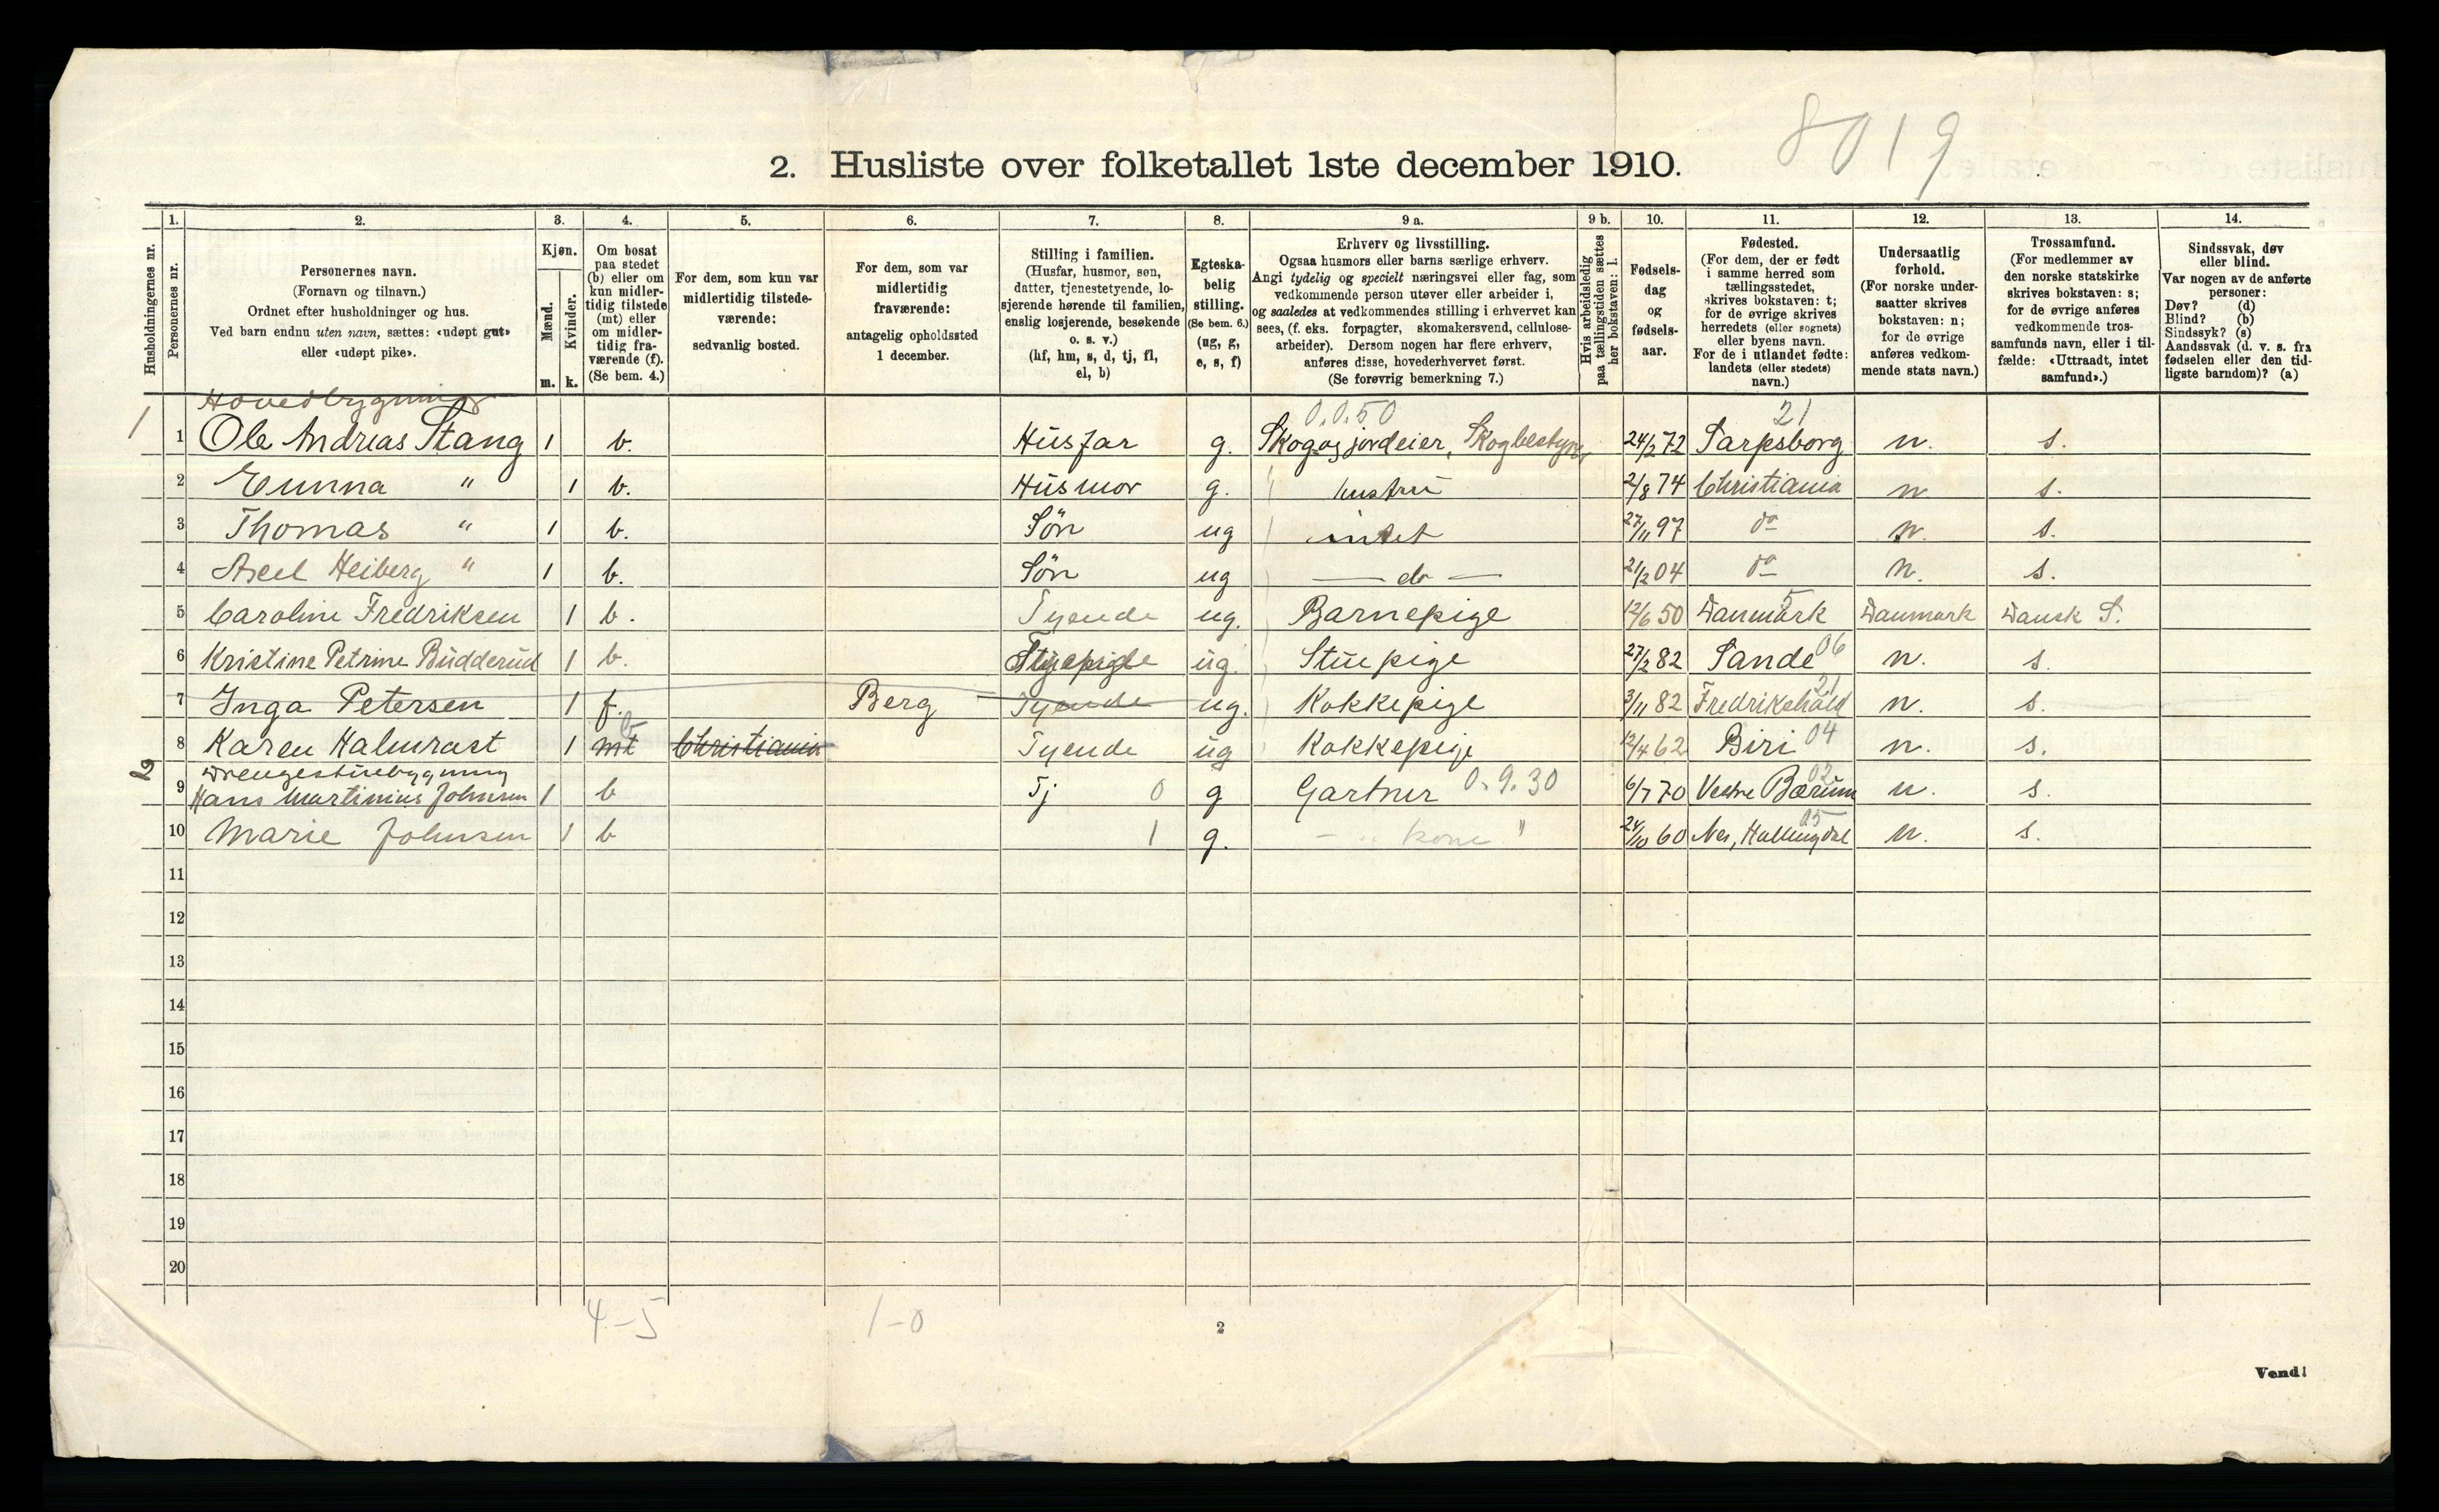 8019
2. Husliste over folketallet 1ste december 1910.
Husholdningernes nr.
1.
Personernes nr.
2.
Personernes navn.
(Fornavn og tilnavn.)
Ordnet efter husholdninger og hus.
Ved barn endnu uten navn, sættes: «udøpt gut»
eller «udøpt pike».
3.
Kjøn.
Mænd.
Kvinder.
m. k.
4.
Om bosat
paa stedet
(b) eller om
kun midler-
tidig tilstede
(mt) eller
om midler-
tidig fra-
værende (f).
(Se bem. 4.)
5.
For dem, som kun var
midlertidig tilstede-
værende:
sedvanlig bosted.
6.
For dem, som var
midlertidig
fraværende:
antagelig opholdssted
1 december.
7.
Stilling i familien.
(Husfar, husmor, søn,
datter, tjenestetyende, lo-
sjerende hørende til familien,
enslig losjerende, besøkende
o. s. v.)
(hf, hm, s, d, tj, fl,
el, b)
8.
Egteska-
belig
stilling.
(Se bem. 6.)
(ug, g,
e, s, f)
9 a.
Erhverv og livsstilling.
Ogsaa husmors eller barns særlige erhverv.
Angi tydelig og specielt næringsvei eller fag, som
vedkommende person utøver eller arbeider i,
og saaledes at vedkommendes stilling i erhvervet kan
sees, (f. eks. forpagter, skomakersvend, cellulose-
arbeider). Dersom nogen har flere erhverv,
anføres disse, hovederhvervet først.
(Se forøvrig bemerkning 7.)
9 b.
Hvis arbeidsledig
paa tællingstiden sættes
her bokstaven: l.
10.
Fødsels-
dag
og
fødsels-
aar.
11.
Fødested.
(For dem, der er født
i samme herred som
tællingsstedet,
skrives bokstaven: t;
for de øvrige skrives
herredets (eller sognets)
eller byens navn.
For de i utlandet fødte:
landets (eller stedets)
navn.)
12.
Undersaatlig
forhold.
(For norske under-
saatter skrives
bokstaven: n;
for de øvrige
anføres vedkom-
mende stats navn.)
13.
Trossamfund.
(For medlemmer av
den norske statskirke
skrives bokstaven: s;
for de øvrige anføres
vedkommende tros-
samfunds navn, eller i til-
fælde: «Uttraadt, intet
samfund».)
14.
Sindssvak, døv
eller blind.
Var nogen av de anførte
personer:
Døv? (d)
Blind? (b)
Sindssyk? (s)
Aandssvak (d. v. s. fra
fødselen eller den tid-
ligste barndom)? (a)
Hovedbygning 0.0.50 21
1 1 Ole Andreas Stang 1 b. Husfar g. Skog og jordeier, Skogbestyrer 24/2 72 Sarpsborg n. s.
2 " 1 b. Husmor g. hustru 2/8 74 Christiania n s.
3 Thomas " 1 b. Søn ug intet 27/11 97 do n. s.
4 Axel Heiberg " 1 b. Søn ug — do — 21/2 04 do n. s.
5 Caroline Fredriksen 1 b. Tyende ug. Barnepige 12/6 50 Danmark 5 Danmark Dansk S.
6 Kristine Petrine Budderud 1 b. ug. Stuepige 27/2 82 Sande 06 n. s.
7 Inga Petersen 1 f. Berg Tyende ug. Kokkepige 3/11 82 Fredrikshald 21 n. s.
8 Karen Halmrast 1 mt b Christiania Tyende ug Kokkepige 12/4 62 Biri 04 n. s.
2 Drengestuebygning
9 Hans Martinius Johnsen 1 b Tj 0 g Gartner 0.9.30 6/7 70 Vestre Bærum 02 n. s.
10 Marie Johnsen 1 b 1 g. - " kone " 24/10 60 Nes, Hallingdal 05 n. s.
11
12
13
14
15
16
17
18
19
20
4-5 1-0
2
Vend!